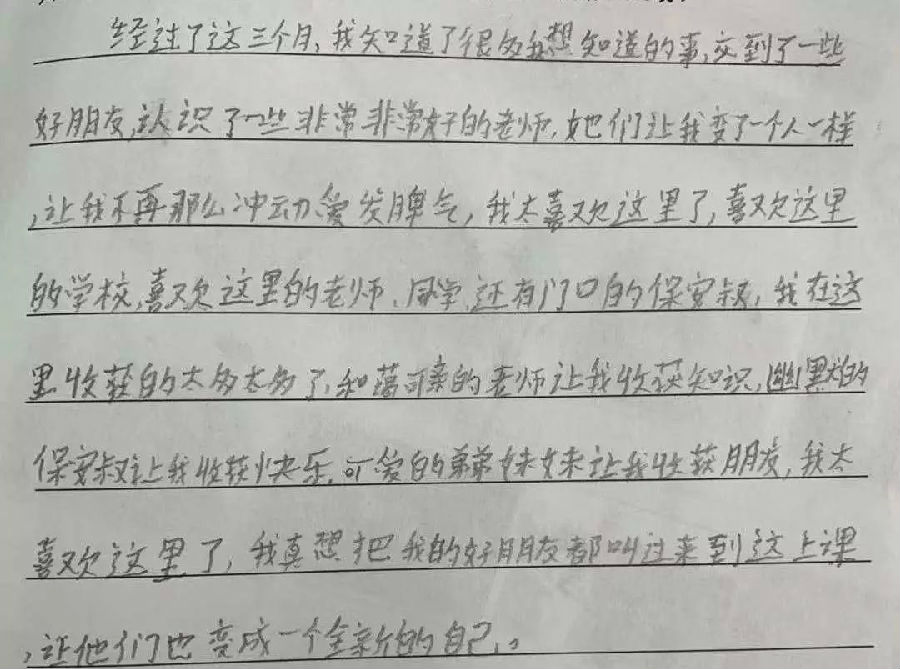 经过了这三个月,我知道了很多我想知道的事,交到了一些
好朋友,认识了一些非常非常好的老师,她们让我变了一个人一样
,让我不再那么冲动爱发脾气,我太喜欢这里了,喜欢这里
的学校,喜欢这里的老师、同学,还有门口的保安叔,我在这
里收获的太多太多了,和蔼可亲的老师让我收获知识,幽默的
保安叔让我收获快乐,可爱的弟弟妹妹让我收获朋友,我太
喜欢这里了,我真想把我的好朋友都叫过来到这上课
,让他们也变成一个全新的自己。